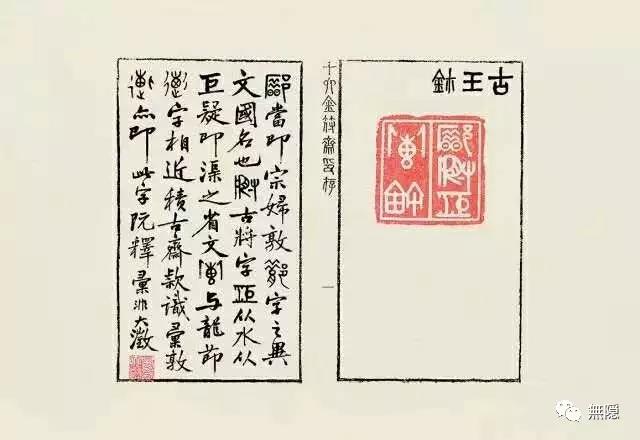 古王鉩
十六金符齋印存
一
當即宗婦敦字之異
文國名也古將字从水从
巨疑即渠之省文与龍節
字相近積古齋款識彙敦
亦即此字阮釋彙非大澂
無隱